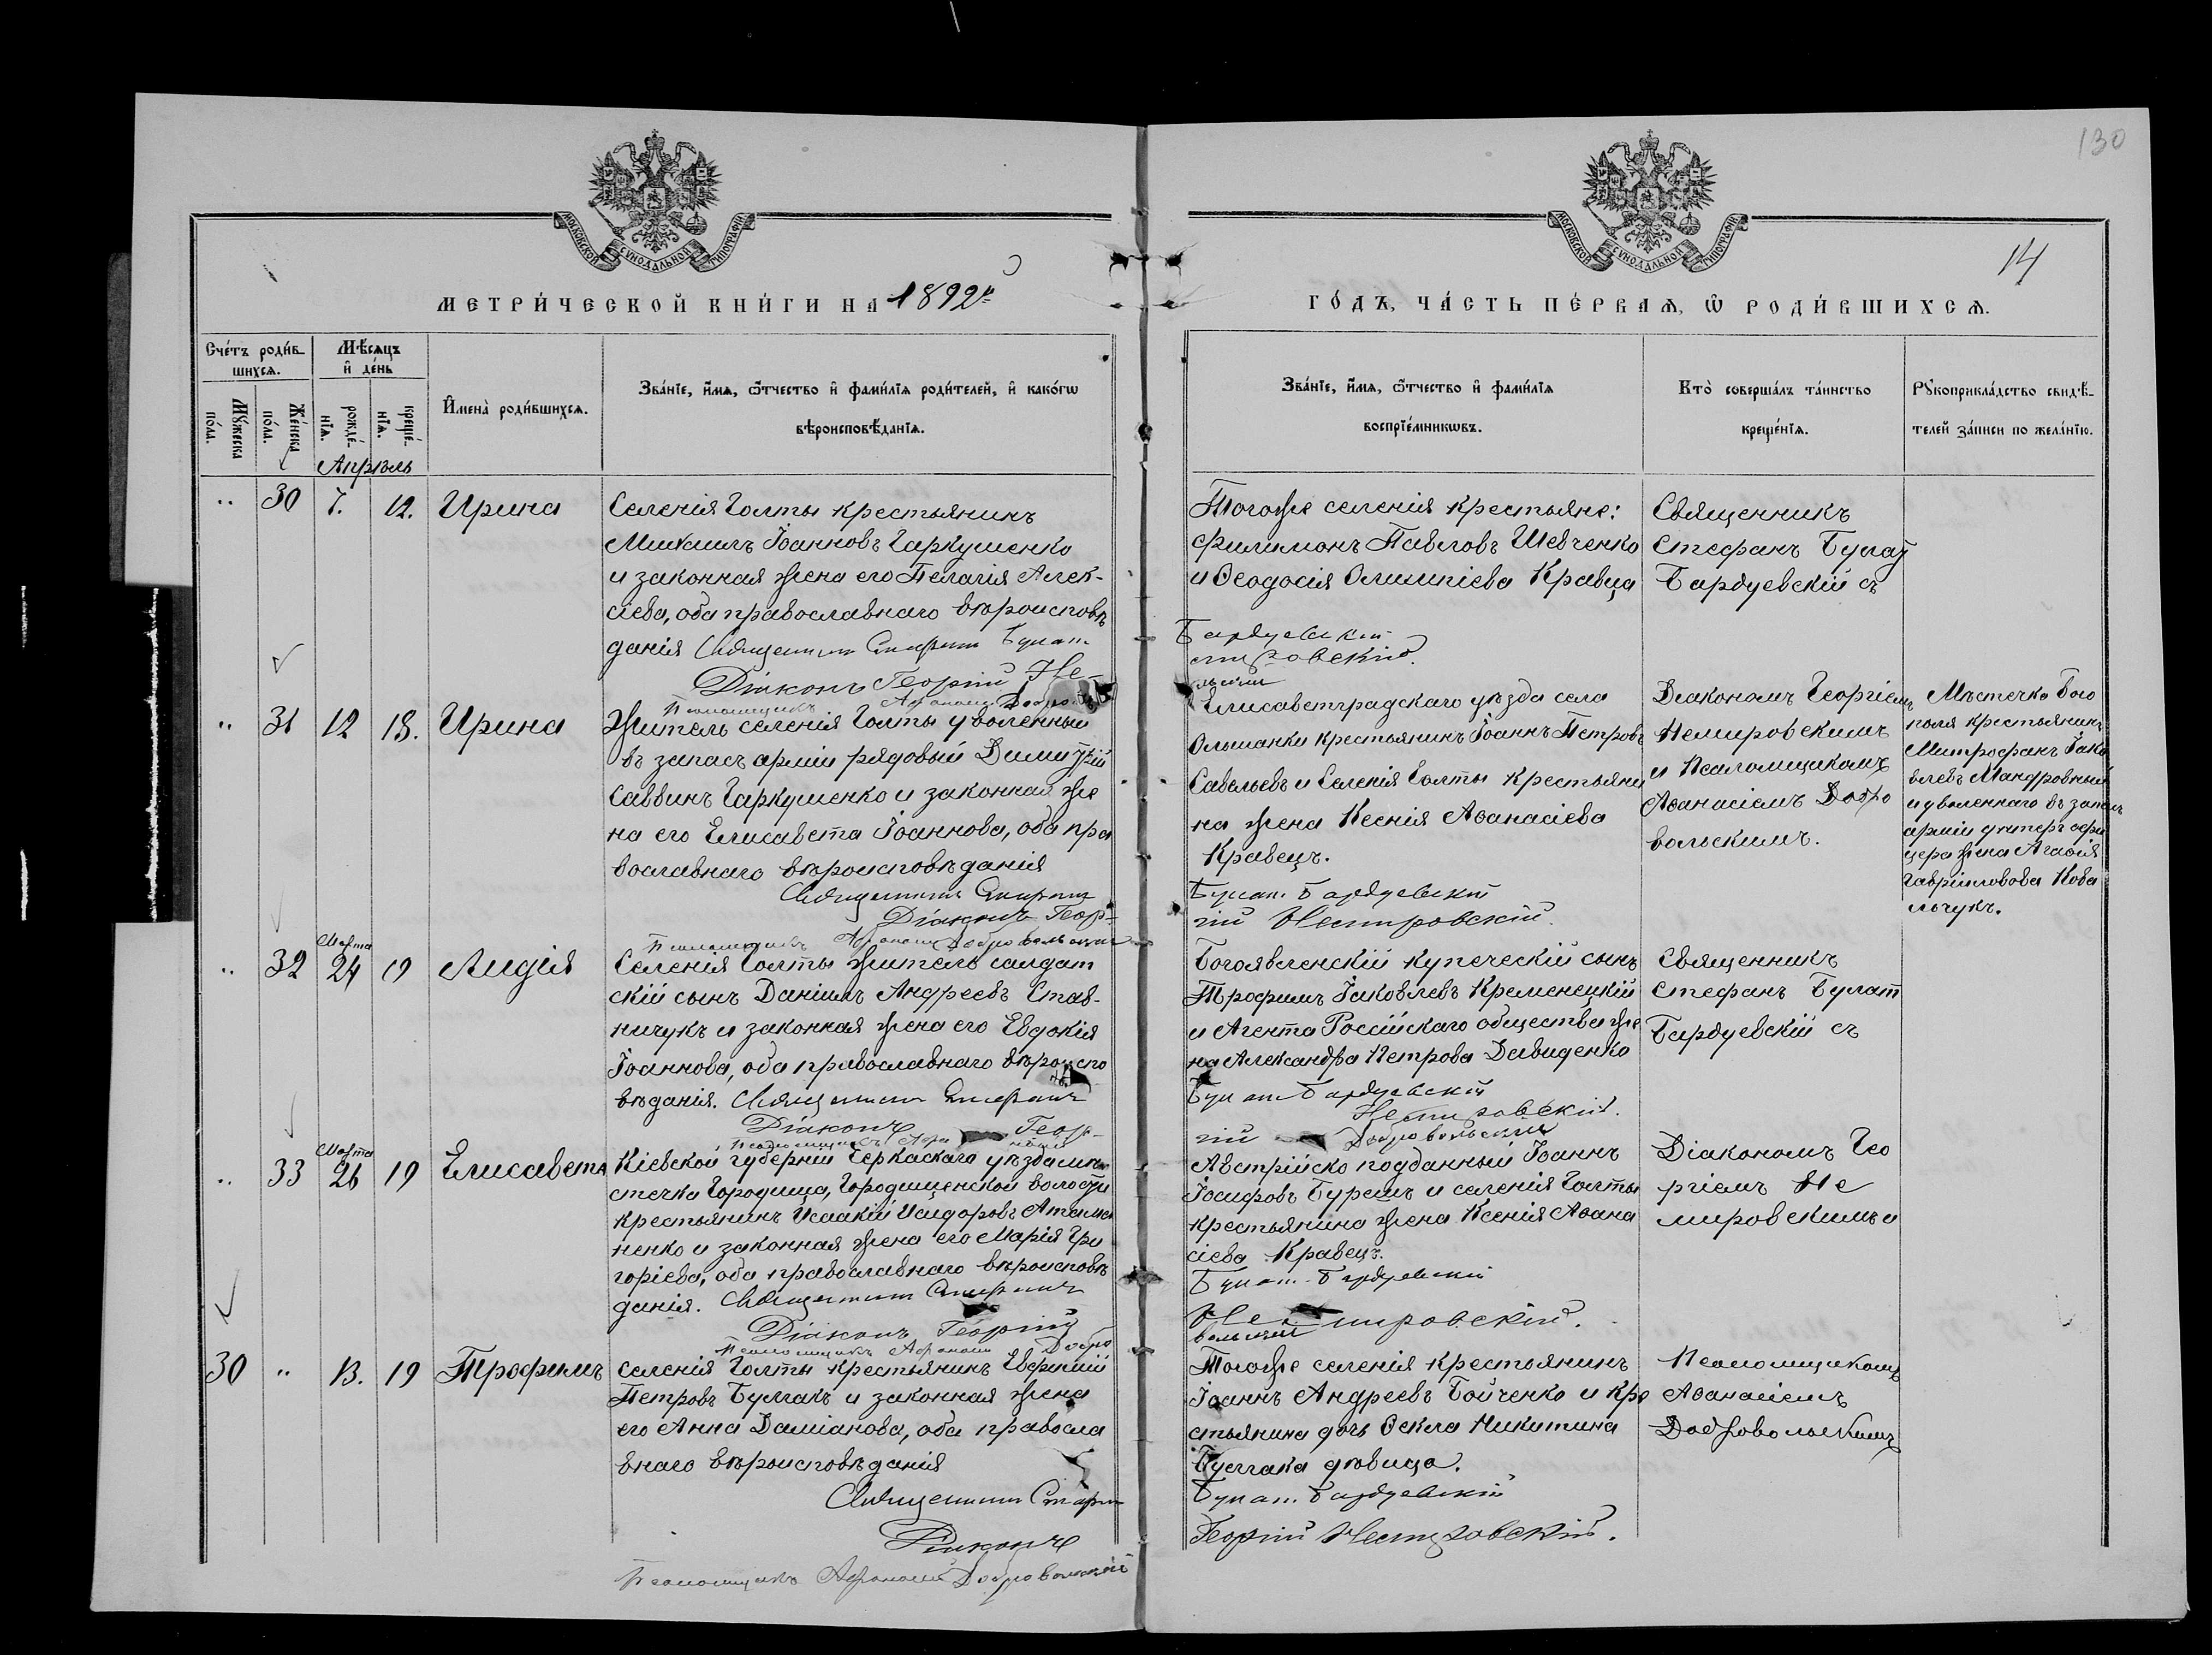 130
МОСКОВСКОЙ СУНОДАЛЬНОЙ ТИПОГРАФІИ
МОСКОВСКОЙ СУНОДАЛЬНОЙ ТИПОГРАФІИ
14
МЕТРИ́ЧЕСКОЙ КНИ́ГИ НА 1892 г.
ГО́ДЪ, ЧА́СТЬ ПЕ́РВАѦ, Ѿ РОДИ́ВШИХСѦ.
Сче́тъ роди́в-
шихсѧ.
Мꙋ́жеска
по́ла.
Же́нска
по́ла.
Мѣ́сѧцъ
и҆ де́нь
рожде́-
нїѧ.
креще́-
нїѧ.
И҆мена̀ роди́вшихсѧ.
Зва́нїе, и҆́мѧ, ѻ҆́тчество и҆ фами́лїѧ роди́телей, и҆ како́гѡ
вѣроисповѣ́данїѧ.
Зва́нїе, и҆́мѧ, ѻ҆́тчество и҆ фами́лїѧ
воспрїе́мникѡвъ.
Кто̀ соверша́лъ та́инство
креще́нїѧ.
Рꙋкоприкла́дство свидѣ́-
телей за́писи по жела́нїю.
Апрѣль
" 30 7. 12. Ирина
Селенія Голты крестьянинъ
Михаилъ Іоанновъ Гаркушенко
и законная жена его Пелагія Алек-
сіева, оба православнаго вѣроисповѣ
данія Священникъ Стефанъ Булат
Діаконъ Георгій Не-
Псаломщикъ
Тогоже селенія крестьяне:
Филимонъ Павловъ Шевченко
и Ѳеодосія Олимпіева Кравца
Бардуевскій
мировскій.
Священникъ
Стефанъ Булат
Бардуевскій съ
" 31 12 13. Ирина
Житель селенія Голты уволенный
въ запасъ арміи рядовый Димитрій
Саввинъ Гаркушенко и законная же
на его Елисавета Іоаннова, оба пра
вославнаго вѣроисповѣданія
Священникъ Стефанъ
Діаконъ Геор-
Псаломщикъ Афанасій Добровольскій
Елисаветградскаго уѣзда села
Ольшанки крестьянинъ Іоаннъ Петровъ
Савельевъ и Селенія Голты крестьяни
на жена Ксенія Аѳанасіева
Кравецъ.
Булат. Бардуевскій
гій Немировскій.
Діакономъ Георгіемъ
Немировскимъ
и Псаломщикомъ
Аѳанасіемъ Добро
вольскимъ.
Мѣстечка Бого
поля крестьянинъ
Митрофанъ Іако
влевъ Мандровный
и уволеннаго въ запасъ
арміи унтеръ офи
цера жена Агаѳія
Гавріиловова Кова
льчукъ.
" 32 Марта 24 19 Лидія
Селенія Голты житель салдат
скій сынъ Даніилъ Андреевъ Став-
ничукъ и законная жена его Евдокія
Іоаннова, оба православнаго вѣроиспо
вѣданія. Священникъ Стефанъ
Діаконъ Геор-
Богоявленскій купеческій сынъ
Трофимъ Іаковлевъ Кременецкій
и Агента Россійскаго общества же
на Александра Петрова Давиденко
Булат Бардуевскій
гій Немировскій.
Добровольскій
Священникъ
Стефанъ Булат
Бардуевскій съ
" 33 Марта 26 19 Елисавета
Кіевской губерніи Черкаскаго уѣзда мѣ
стечка Городища, Городищенской волости
крестьянинъ Исаакій Исидоровъ Атама
ненко и законная жена его Марія Гри
горіева, оба православнаго вѣроисповѣ
данія. Священникъ Стефанъ
Діаконъ Георгій
Псаломщикъ Афанасій Добро
Австрійско подданный Іоаннъ
Іосифовъ Бурешъ и селенія Голты
крестьянина жена Ксенія Аѳана
сіева Кравецъ.
Булат. Бардуевскій
Немировскій.
вольскій
Діакономъ Гео
ргіемъ Не
мировскимъ и
30 " 13. 19 Трофимъ
селенія Голты крестьянинъ Евфимій
Петровъ Булгакъ и законная жена
его Анна Даміанова, оба правосла
внаго вѣроисповѣданія
Священникъ Стефан
Діаконъ
Псаломщикъ Афанасій Добровольскій
Тогоже селенія крестьянинъ
Іоаннъ Андреевъ Бойченко и кре
стьянина дочь Ѳекла Никитина
Булгака дѣвица.
Булат. Бардуевскій
Георгій Немировскій.
Псаломщикомъ
Аѳанасіемъ
Добровольскимъ